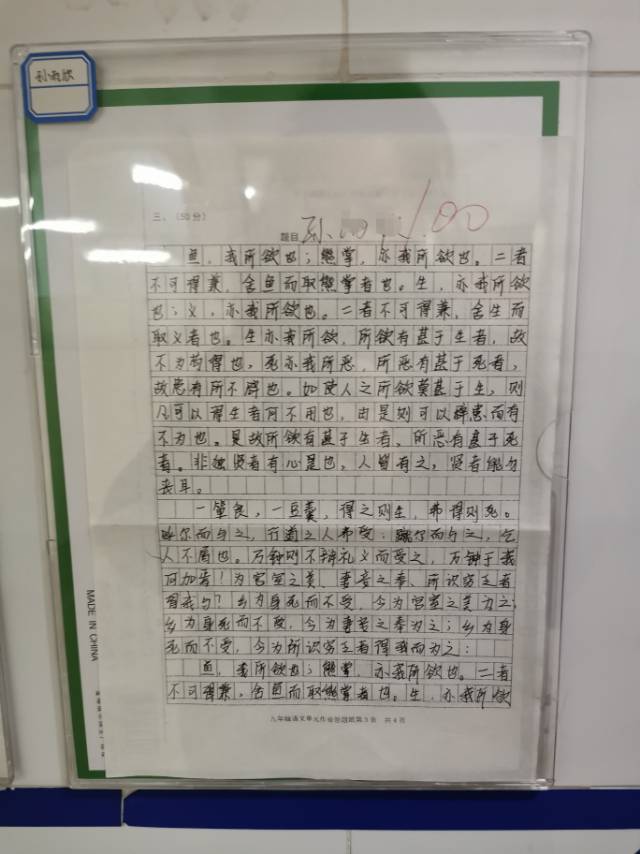 孙雨欣
三、(50分)
题目 孙 100
鱼，我所欲也；熊掌，亦我所欲也。二者
不可得兼，舍鱼而取熊掌者也。生，亦我所欲
也；义，亦我所欲也。二者不可得兼，舍生而
取义者也。生亦我所欲，所欲有甚于生者，故
不为苟得也，死亦我所恶，所恶有甚于死者，
故患有所不辟也。如使人之所欲莫甚于生，则
凡可以得生者何不用也，由是则可以辟患而有
不为也。是故所欲有甚于生者、所恶有甚于死
者。非独贤者有心是也，人皆有之，贤者能勿
丧耳。
一箪食，一豆羹，得之则生，弗得则死。
呼尔而与之，行道之人弗受；蹴尔而与之，乞
人不屑也。万钟则不辩礼义而受之，万钟于我
何加焉？为宫室之美、妻妾之奉、所识穷乏者
得我与？乡为身死而不受，今为宫室之美为之；
乡为身死而不受，今为妻妾之奉为之；乡为身
死而不受，今为所识穷乏者得我而为之：
鱼，我所欲也；熊掌，亦我所欲也。二者
不可得兼，舍鱼而取熊掌者也。生，亦我所欲
九年级语文单元作业答题纸第3页 共4页
MADE IN CHINA